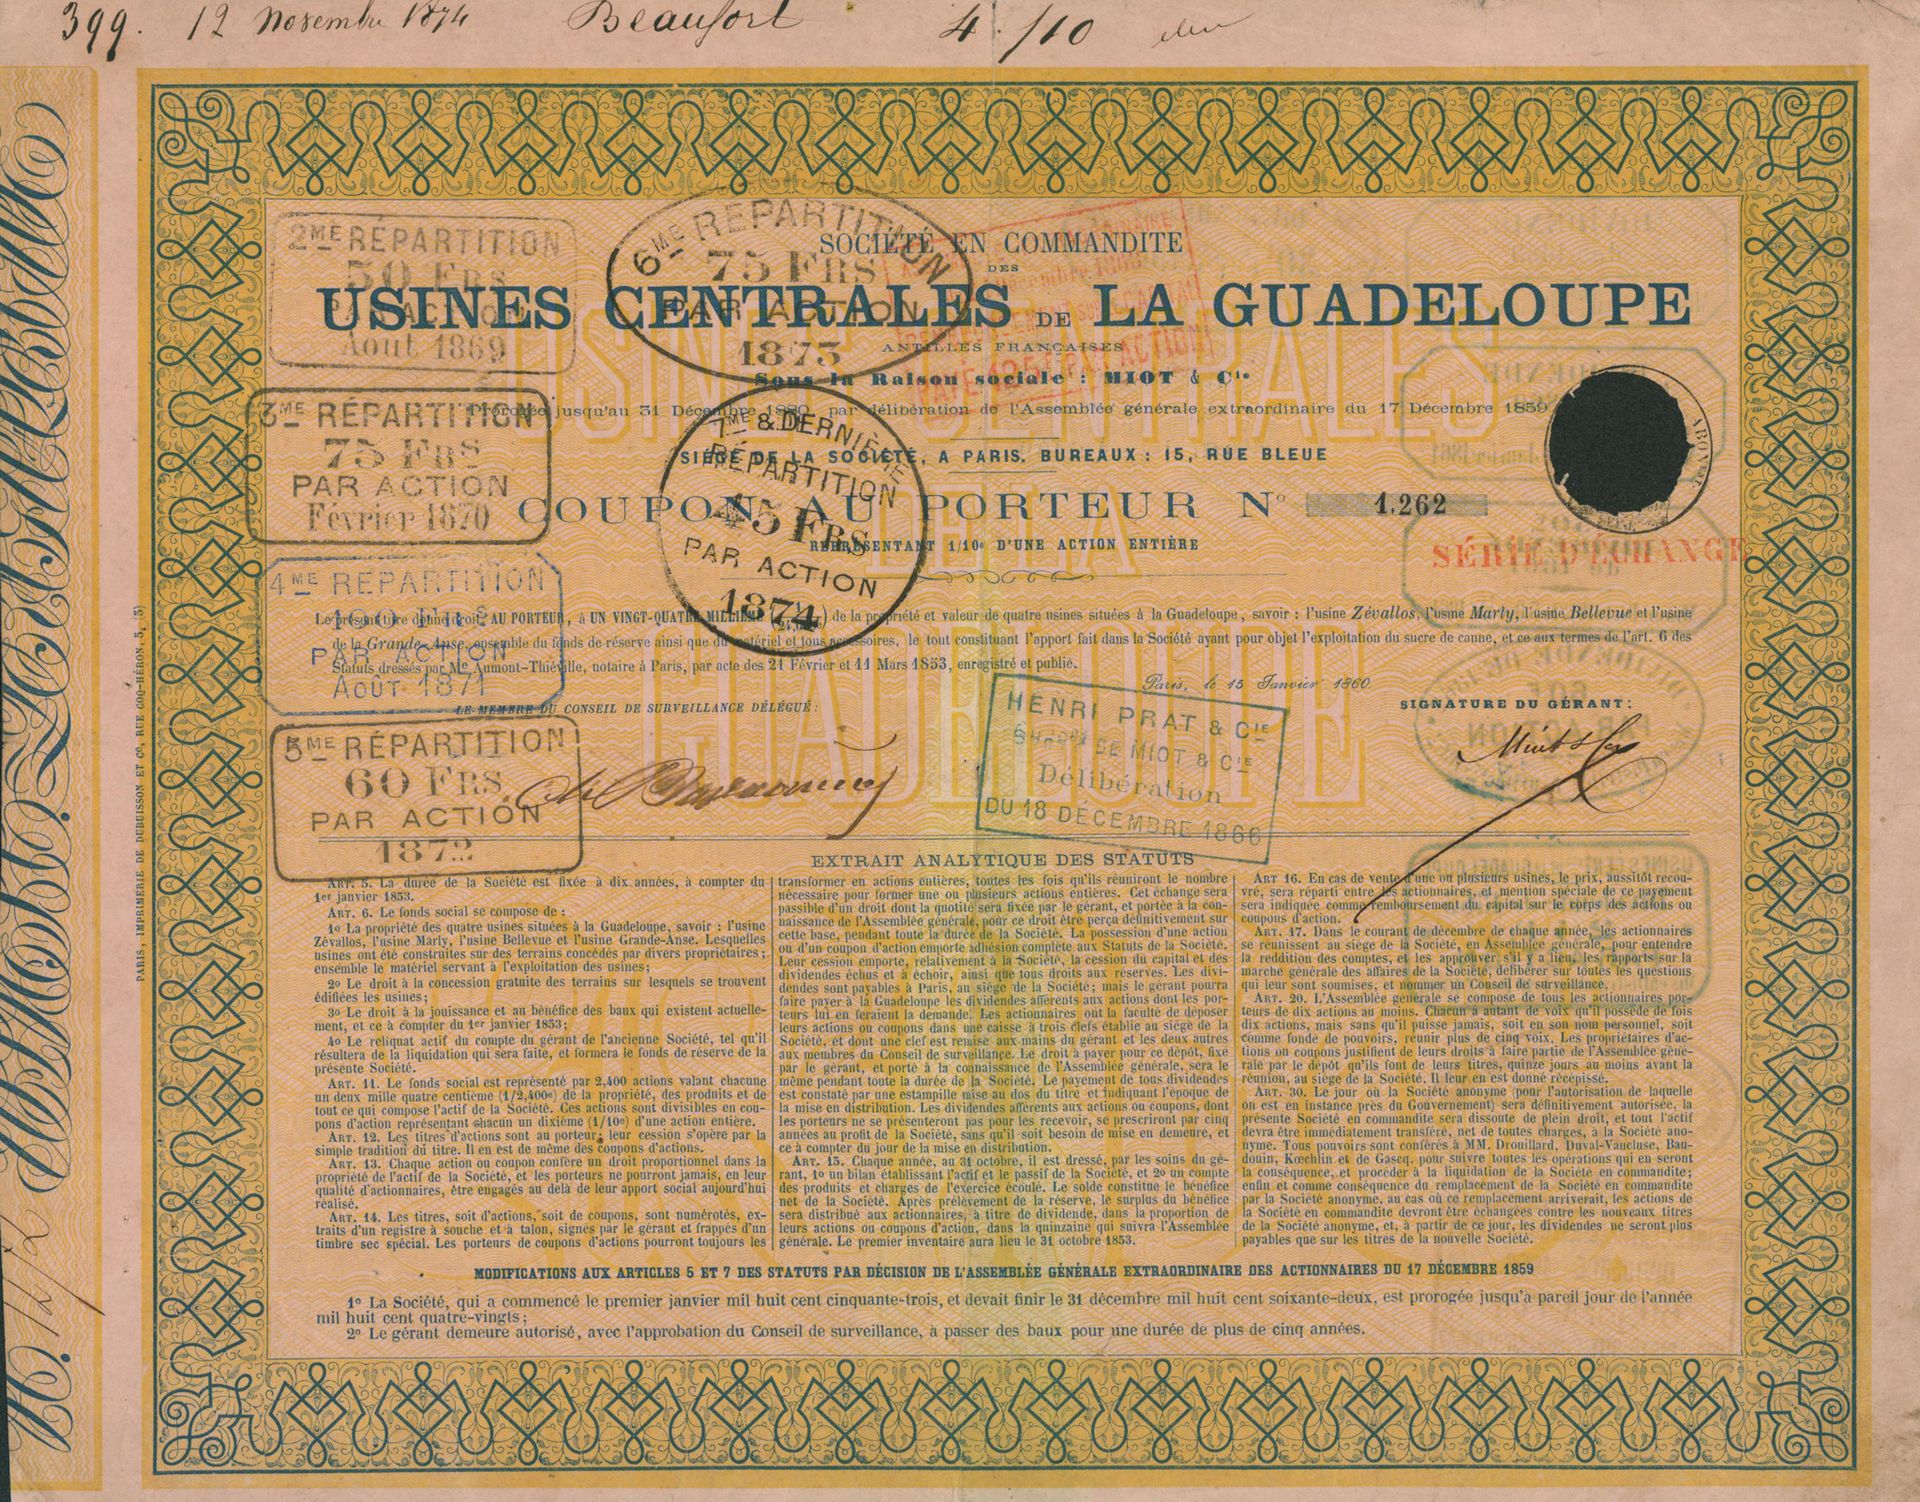 399. 12 Novembre 1874 Beaufort 4./10
2ME RÉPARTITION
50 FRS
PAR ACTION
Août 1869
6ME RÉPARTITION
75 FRS
PAR ACTION
1873
SOCIÉTÉ EN COMMANDITE
DES
USINES CENTRALES DE LA GUADELOUPE
ANTILLES FRANÇAISES
Sous la Raison sociale : MIOT & Cie
Prorogée jusqu'au 31 Décembre 1880, par délibération de l'Assemblée générale extraordinaire du 17 Décembre 1859
SIÉGE DE LA SOCIÉTÉ, A PARIS. BUREAUX : 15, RUE BLEUE
COUPON AU PORTEUR No 1.262
REPRÉSENTANT 1/10e D'UNE ACTION ENTIÈRE
SÉRIE D'ÉCHANGE
3ME RÉPARTITION
75 FRS
PAR ACTION
Février 1870
7ME & DERNIÈRE
RÉPARTITION
45 FRS
PAR ACTION
1874
4ME RÉPARTITION
100 FRS
PAR ACTION
AOÛT 1871
Le présent titre donne droit, AU PORTEUR, à UN VINGT-QUATRE MILLIÈME de la propriété et valeur de quatre usines situées à la Guadeloupe, savoir : l'usine Zévallos, l'usine Marly, l'usine Bellevue et l'usine
de la Grande-Anse, ensemble du fonds de réserve ainsi que du matériel et tous accessoires, le tout constituant l'apport fait dans la Société ayant pour objet l'exploitation du sucre de canne, et ce aux termes de l'art. 6 des
Statuts dressés par Me Aumont-Thiéville, notaire à Paris, par acte des 21 Février et 11 Mars 1853, enregistré et publié.
Paris, le 15 Janvier 1860.
LE MEMBRE DU CONSEIL DE SURVEILLANCE DÉLÉGUÉ :
SIGNATURE DU GÉRANT :
5ME RÉPARTITION
60 FRS
PAR ACTION
1872
HENRI PRAT & CIE
DE MIOT & CIE
Délibération
DU 18 DÉCEMBRE 1866
EXTRAIT ANALYTIQUE DES STATUTS
ART. 5. La durée de la Société est fixée à dix années, à compter du
1er janvier 1853.
ART. 6. Le fonds social se compose de :
1o La propriété des quatre usines situées à la Guadeloupe, savoir : l'usine
Zévallos, l'usine Marly, l'usine Bellevue et l'usine Grande-Anse. Lesquelles
usines ont été construites sur des terrains concédés par divers propriétaires ;
ensemble le matériel servant à l'exploitation des usines ;
2o Le droit à la concession gratuite des terrains sur lesquels se trouvent
édifiées les usines ;
3o Le droit à la jouissance et au bénéfice des baux qui existent actuelle-
ment, et ce à compter du 1er janvier 1853 ;
4o Le reliquat actif du compte du gérant de l'ancienne Société, tel qu'il
résultera de la liquidation qui sera faite, et formera le fonds de réserve de la
présente Société.
ART. 11. Le fonds social est représenté par 2,400 actions valant chacune
un deux mille quatre centième (1/2,400e) de la propriété, des produits et de
tout ce qui compose l'actif de la Société. Ces actions sont divisibles en cou-
pons d'action représentant chacun un dixième (1/10e) d'une action entière.
ART. 12. Les titres d'actions sont au porteur, leur cession s'opère par la
simple tradition du titre. Il en est de même des coupons d'actions.
ART. 13. Chaque action ou coupon confère un droit proportionnel dans la
propriété de l'actif de la Société, et les porteurs ne pourront jamais, en leur
qualité d'actionnaires, être engagés au delà de leur apport social aujourd'hui
réalisé.
ART. 14. Les titres, soit d'actions, soit de coupons, sont numérotés, ex-
traits d'un registre à souche et à talon, signés par le gérant et frappés d'un
timbre sec spécial. Les porteurs de coupons d'actions pourront toujours les
transformer en actions entières, toutes les fois qu'ils réuniront le nombre
nécessaire pour former une ou plusieurs actions entières. Cet échange sera
passible d'un droit dont la quotité sera fixée par le gérant, et portée à la con-
naissance de l'Assemblée générale, pour ce droit être perçu définitivement sur
cette base, pendant toute la durée de la Société. La possession d'une action
ou d'un coupon d'action emporte adhésion complète aux Statuts de la Société.
Leur cession emporte, relativement à la Société, la cession du capital et des
dividendes échus et à échoir, ainsi que tous droits aux réserves. Les divi-
dendes sont payables à Paris, au siége de la Société ; mais le gérant pourra
faire payer à la Guadeloupe les dividendes afférents aux actions dont les por-
teurs lui en feraient la demande. Les actionnaires ont la faculté de déposer
leurs actions ou coupons dans une caisse à trois clefs établie au siége de la
Société, et dont une clef est remise aux mains du gérant et les deux autres
aux membres du Conseil de surveillance. Le droit à payer pour ce dépôt, fixé
par le gérant, et porté à la connaissance de l'Assemblée générale, sera le
même pendant toute la durée de la Société. Le payement de tous dividendes
est constaté par une estampille mise au dos du titre et indiquant l'époque de
la mise en distribution. Les dividendes afférents aux actions ou coupons, dont
les porteurs ne se présenteront pas pour les recevoir, se prescriront par cinq
années au profit de la Société, sans qu'il soit besoin de mise en demeure, et
ce à compter du jour de la mise en distribution.
ART. 15. Chaque année, au 31 octobre, il est dressé, par les soins du gé-
rant, 1o un bilan établissant l'actif et le passif de la Société, et 2o un compte
des produits et charges de l'exercice écoulé. Le solde constitue le bénéfice
net de la Société. Après prélèvement de la réserve, le surplus du bénéfice
sera distribué aux actionnaires, à titre de dividende, dans la proportion de
leurs actions ou coupons d'action, dans la quinzaine qui suivra l'Assemblée
générale. Le premier inventaire aura lieu le 31 octobre 1853.
ART 16. En cas de vente d'une ou plusieurs usines, le prix, aussitôt recou-
vré, sera réparti entre les actionnaires, et mention spéciale de ce payement
sera indiquée comme remboursement du capital sur le corps des actions ou
coupons d'action.
ART. 17. Dans le courant de décembre de chaque année, les actionnaires
se réunissent au siége de la Société, en Assemblée générale, pour entendre
la reddition des comptes, et les approuver s'il y a lieu, les rapports sur la
marche générale des affaires de la Société, délibérer sur toutes les questions
qui leur sont soumises, et nommer un Conseil de surveillance.
ART. 20. L'Assemblée générale se compose de tous les actionnaires por-
teurs de dix actions au moins. Chacun a autant de voix qu'il possède de fois
dix actions, mais sans qu'il puisse jamais, soit en son nom personnel, soit
comme fondé de pouvoirs, réunir plus de cinq voix. Les propriétaires d'ac-
tions ou coupons justifient de leurs droits à faire partie de l'Assemblée géné-
rale par le dépôt qu'ils font de leurs titres, quinze jours au moins avant la
réunion, au siége de la Société. Il leur en est donné récépissé.
ART. 30. Le jour où la Société anonyme (pour l'autorisation de laquelle
on est en instance près du Gouvernement) sera définitivement autorisée, la
présente Société en commandite sera dissoute de plein droit, et tout l'actif
devra être immédiatement transféré, net de toutes charges, à la Société ano-
nyme. Tous pouvoirs sont conférés à MM. Drouillard, Duval-Vaucluse, Bau-
douin, Kœchlin et de Gascq, pour suivre toutes les opérations qui en seront
la conséquence, et procéder à la liquidation de la Société en commandite ;
enfin et comme conséquence du remplacement de la Société en commandite
par la Société anonyme, au cas où ce remplacement arriverait, les actions de
la Société en commandite devront être échangées contre les nouveaux titres
de la Société anonyme, et, à partir de ce jour, les dividendes ne seront plus
payables que sur les titres de la nouvelle Société.
MODIFICATIONS AUX ARTICLES 5 ET 7 DES STATUTS PAR DÉCISION DE L'ASSEMBLÉE GÉNÉRALE EXTRAORDINAIRE DES ACTIONNAIRES DU 17 DÉCEMBRE 1859
1o La Société, qui a commencé le premier janvier mil huit cent cinquante-trois, et devait finir le 31 décembre mil huit cent soixante-deux, est prorogée jusqu'à pareil jour de l'année
mil huit cent quatre-vingts ;
2o Le gérant demeure autorisé, avec l'approbation du Conseil de surveillance, à passer des baux pour une durée de plus de cinq années.
PARIS, IMPRIMERIE DE DUBUISSON ET Ce, RUE COQ-HÉRON, 5.